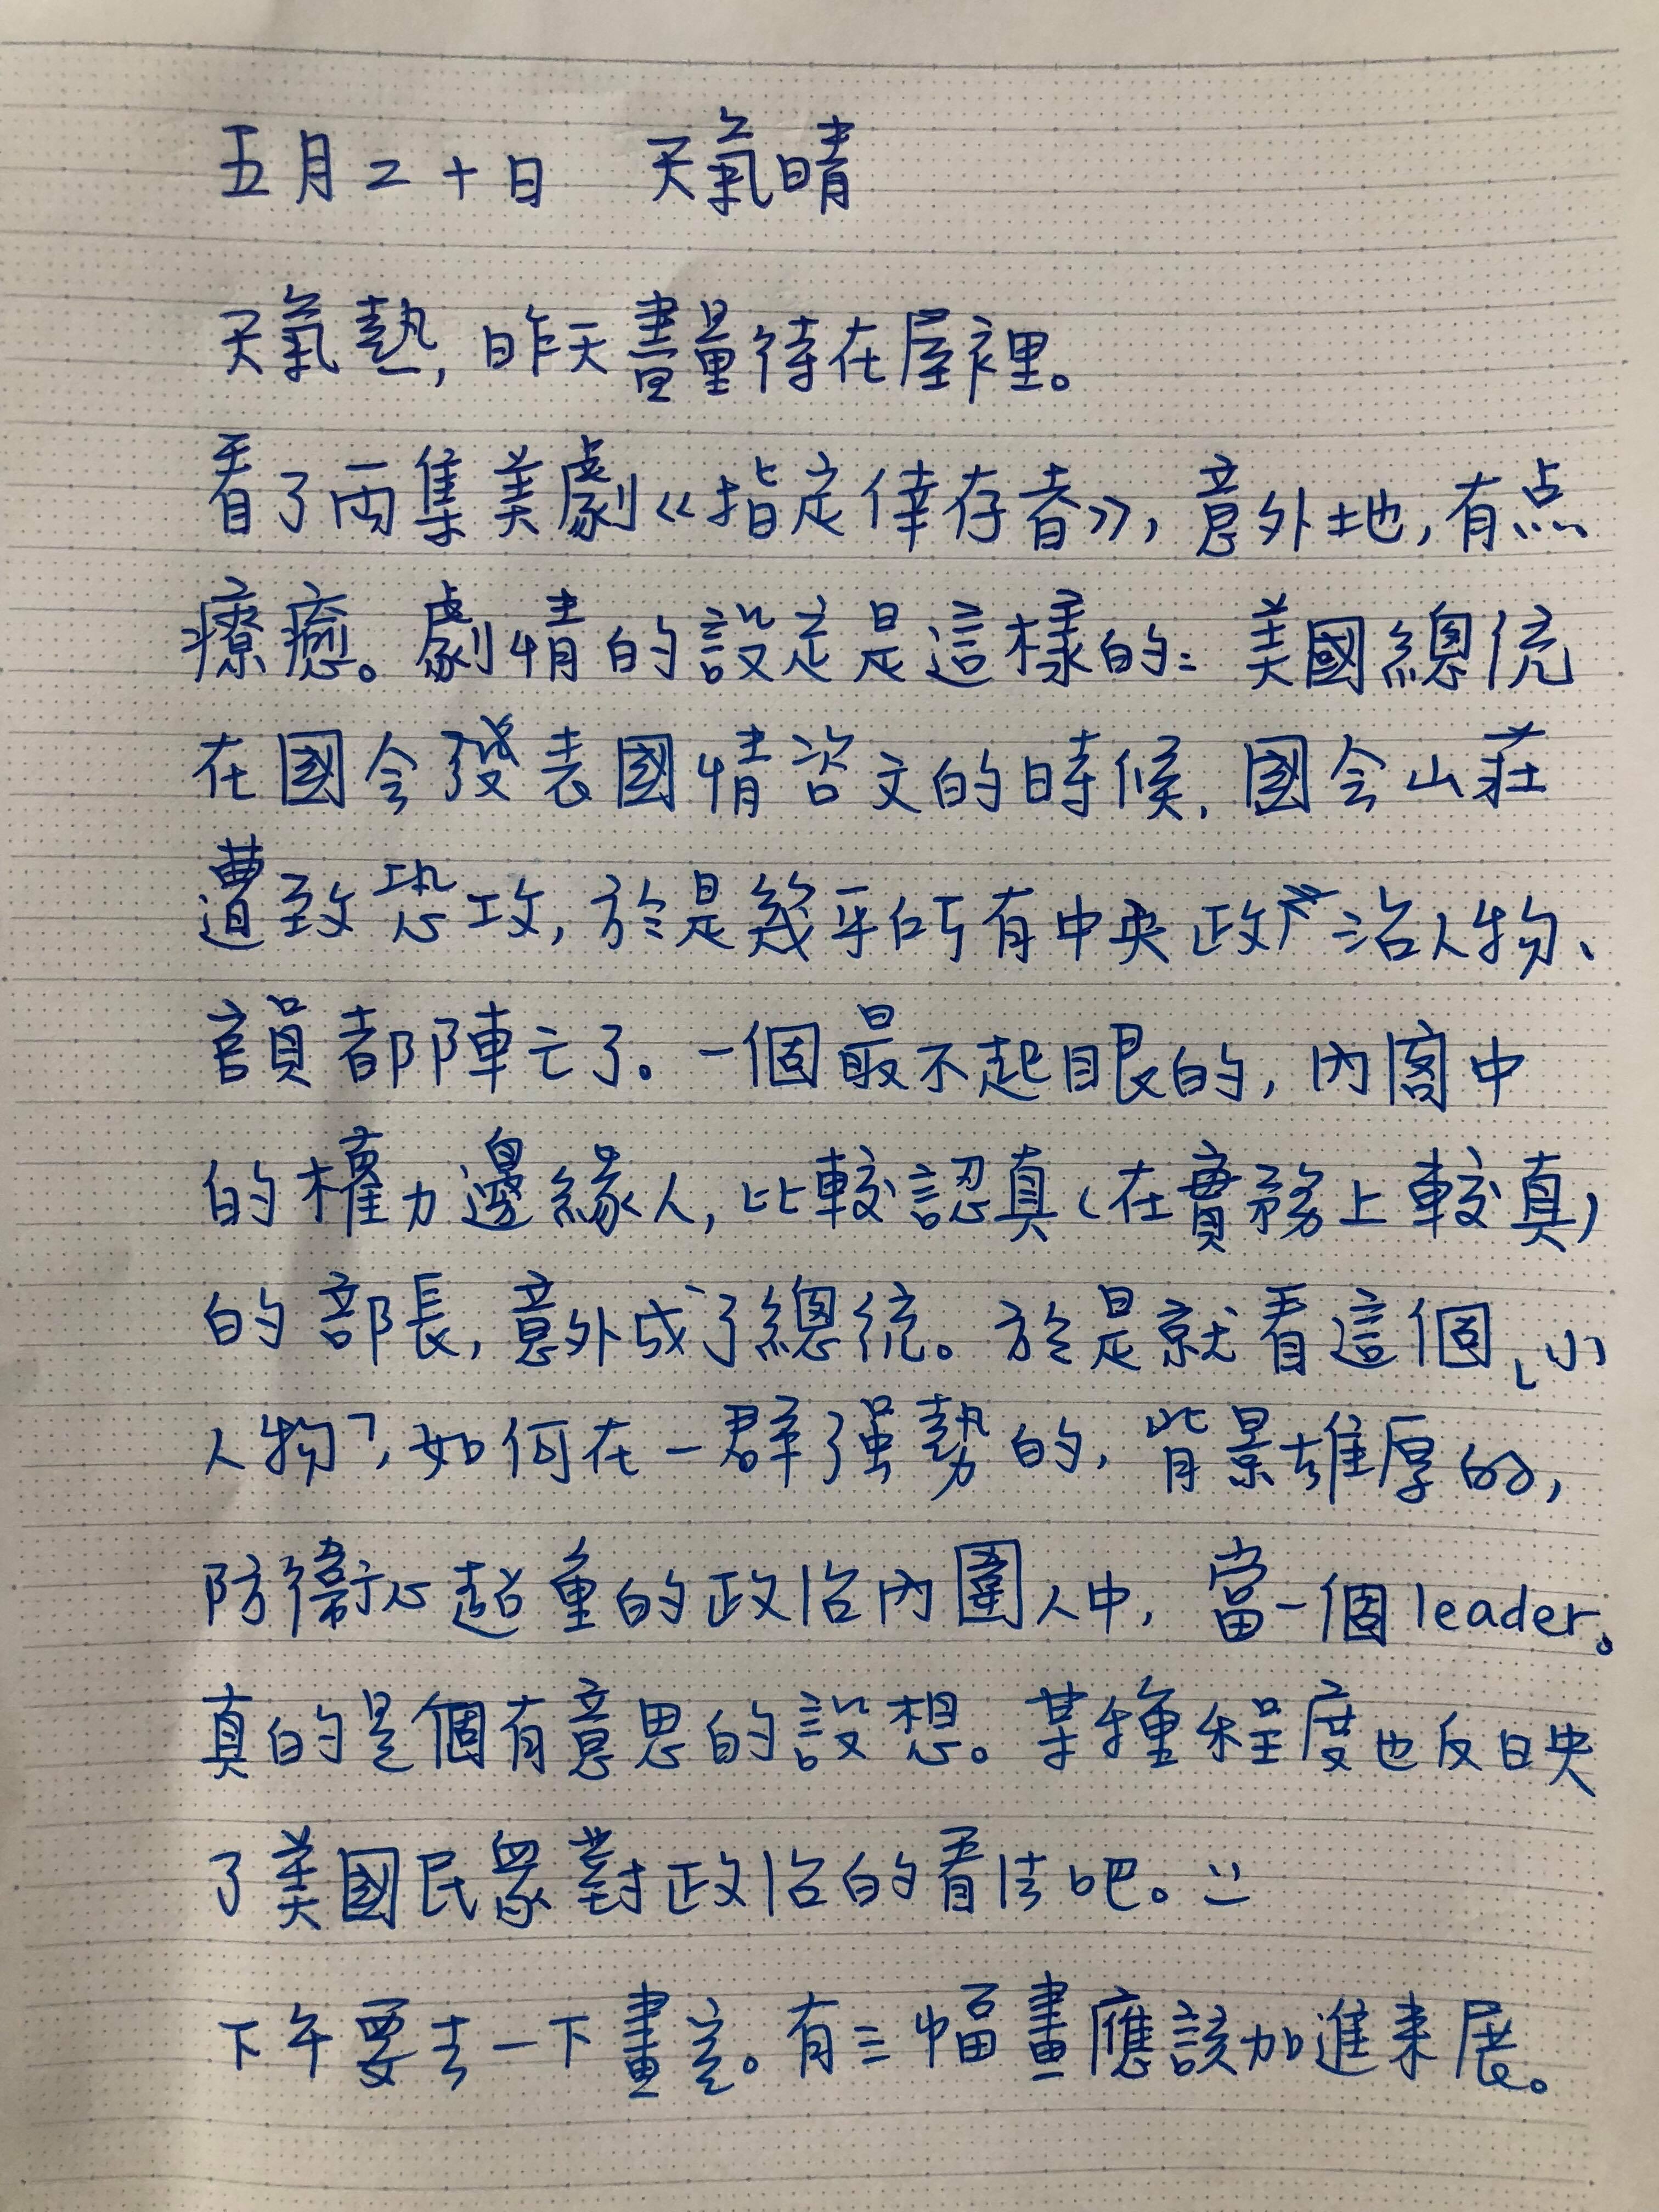 五月二十日 天氣晴
天氣熱,昨天盡量待在屋裡。
看了兩集美劇《指定倖存者》,意外地,有点
療癒。劇情的設定是這樣的: 美國總統
在國会發表國情咨文的時候,國会山莊
遭致恐攻,於是幾乎所有中央政治人物、
官員都陣亡了。一個最不起眼的,內閣中
的權力邊緣人,比較認真(在實務上較真)
的部長,意外成了總統。於是就看這個「小
人物」,如何在一群強勢的,背景雄厚的,
防衛心超重的政治內圍人中,當一個leader。
真的是個有意思的設想。某種程度也反映
了美國民眾對政治的看法吧。:)
下午要去一下畫室。有三幅畫應該加進來展。